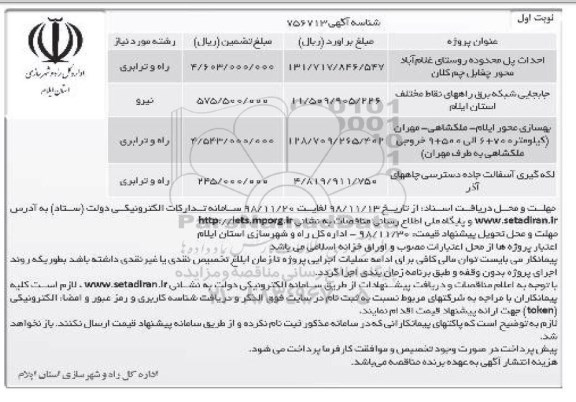 نوبت اول
شناسه آگهی ۷۵۶۷۱۳
اداره کل راه و شهرسازی
استان ایلام
عنوان پروژه
مبلغ برآورد (ریال)
مبلغ تضمین (ریال)
رشته مورد نیاز
احداث پل محدوده روستای غلام‌آباد
محور چفابل چم کلان
۱۳۱/۷۱۷/۸۴۶/۵۴۷
۴/۶۰۳/۰۰۰/۰۰۰
راه و ترابری
جابجایی شبکه برق راههای نقاط مختلف
استان ایلام
۱۱/۵۰۹/۹۰۵/۲۲۶
۵۷۵/۵۰۰/۰۰۰
نیرو
بهسازی محور ایلام- ملکشاهی- مهران
(کیلومتر ۷۰۰+۶ الی ۵۰۰+۹ خروجی
ملکشاهی به طرف مهران)
۱۲۸/۷۰۹/۲۶۵/۴۰۲
۴/۵۴۳/۰۰۰/۰۰۰
راه و ترابری
لکه گیری آسفالت جاده دسترسی چاههای
آذر
۴/۸۱۹/۹۱۱/۷۵۰
۲۴۵/۰۰۰/۰۰۰
راه و ترابری
مهلت و محل دریافت اسناد: از تاریخ ۹۸/۱۱/۱۳ لغایت ۹۸/۱۱/۲۰ سامانه تدارکات الکترونیکی دولت (ستاد) به آدرس
www.setadiran.ir و پایگاه ملی اطلاع رسانی مناقصات به نشانی http://iets.mporg.ir
مهلت و محل تحویل پیشنهاد قیمت: ۹۸/۱۱/۳۰ - اداره کل راه و شهرسازی استان ایلام
اعتبار پروژه ها از محل اعتبارات مصوب و اوراق خزانه اسلامی می باشد
پیمانکار می بایست توان مالی کافی برای ادامه عملیات اجرایی پروژه تا زمان ابلاغ تخصیص نقدی یا غیر نقدی داشته باشد بطوریکه روند
اجرای پروژه بدون وقفه و طبق برنامه زمان بندی اجرا گردد.
با توجه به اعلام مناقصات و دریافت پیشنهادات از طریق سامانه الکترونیکی دولت به نشانی www.setadiran.ir ، لازم است کلیه
پیمانکاران با مراجعه به شرکتهای مربوط نسبت به ثبت نام در سایت فوق الذکر و دریافت شناسه کاربری و رمز عبور و امضاء الکترونیکی
(token) جهت ارائه پیشنهاد قیمت اقدام نمایند.
لازم به توضیح است که پاکتهای پیمانکارانی که در سامانه مذکور ثبت نام نکرده و از طریق سامانه پیشنهاد قیمت ارسال نکنند، باز نخواهد
شد.
پیش پرداخت در صورت وجود تخصیص و موافقت کارفرما پرداخت می شود.
هزینه انتشار آگهی به عهده برنده مناقصه می‌باشد.
اداره کل راه و شهرسازی استان ایلام